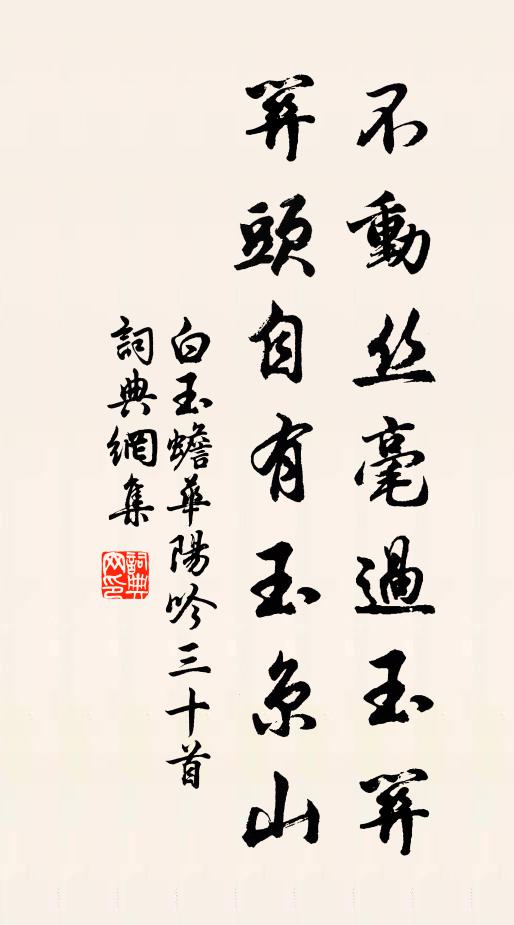 不動丝毫過玉關
關頭自有玉京山
白玉蟾華陽吟三十首
詞典網集
詞典
网印